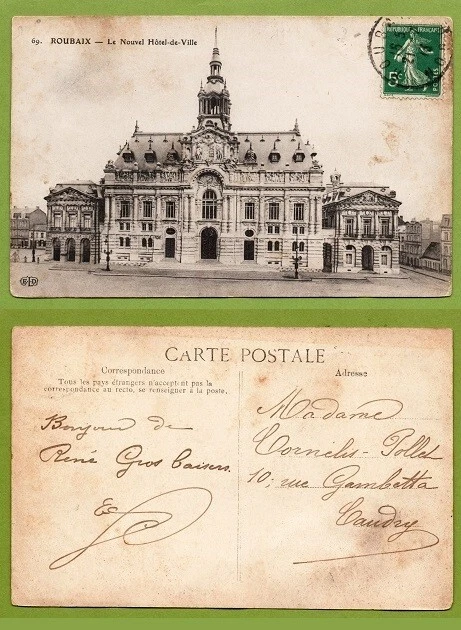 69. ROUBAIX — Le Nouvel Hôtel-de-Ville
REPUBLIQUE FRANÇAISE
5c
POSTES
ELD
CARTE POSTALE
Correspondance
Tous les pays étrangers n'acceptant pas la
correspondance au recto, se renseigner à la poste.
Adresse
Bonjour de
René Gros baisers
Madame
Cornélis-Pollet
10; rue Gambetta
Caudry